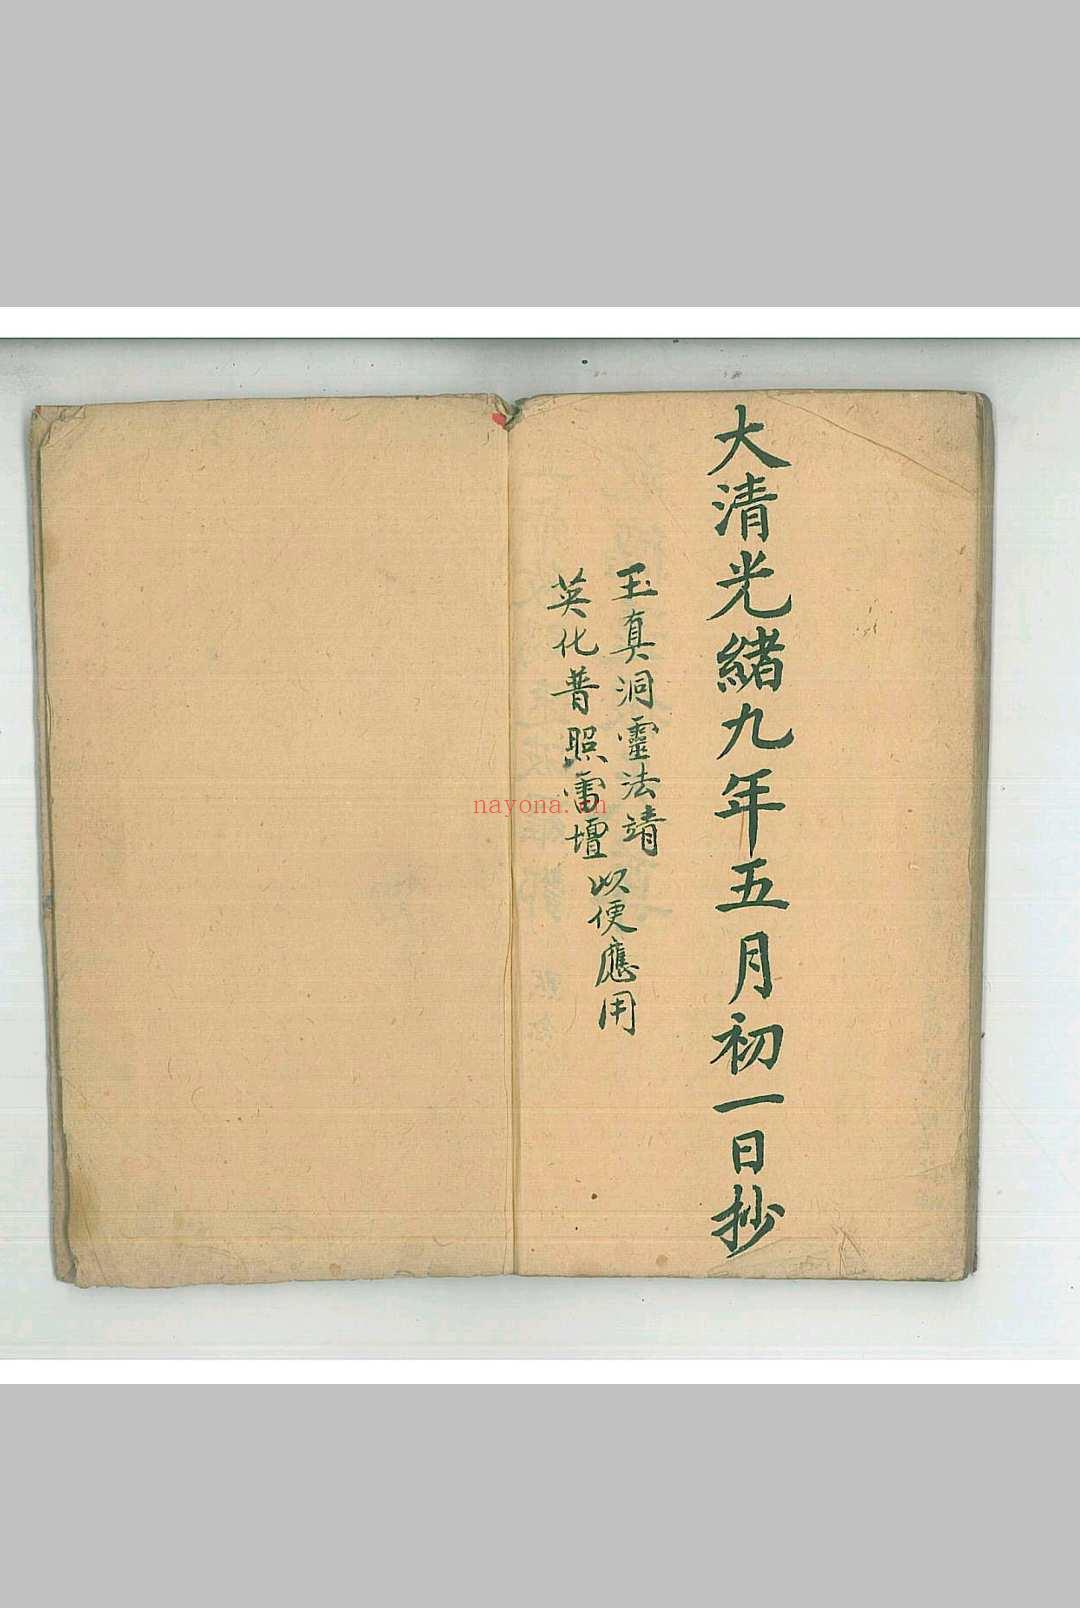 大清光緒九年五月初一日抄
玉真洞靈法靖
英化普照雷壇
以便應用
nayona.cn